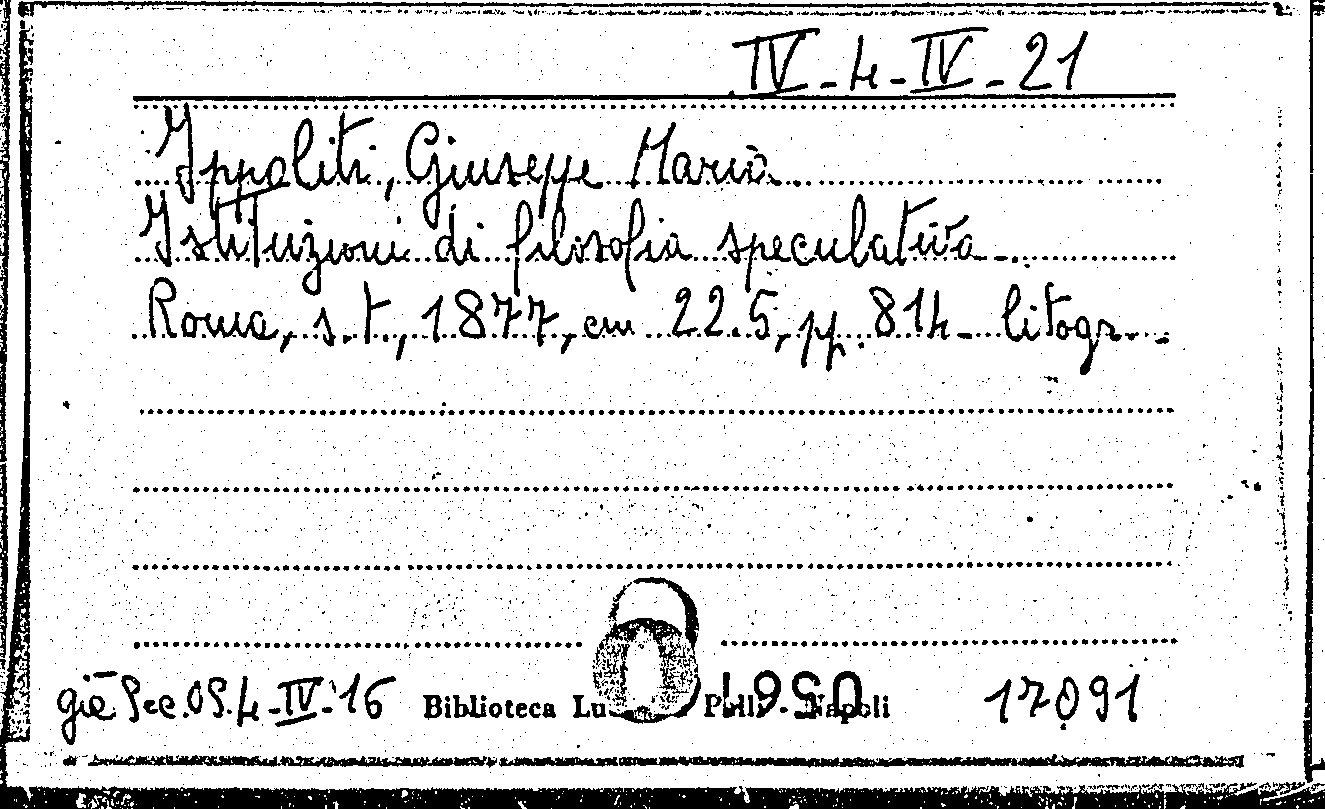 IV-4-IV-21
Ippoliti, Giuseppe Maria
Istituzioni di filosofia speculativa -.
Roma, s.t., 1877, cm 22.5, pp. 814- litogr. -
già Sec. 4-IV-16 Biblioteca Napoli 17091